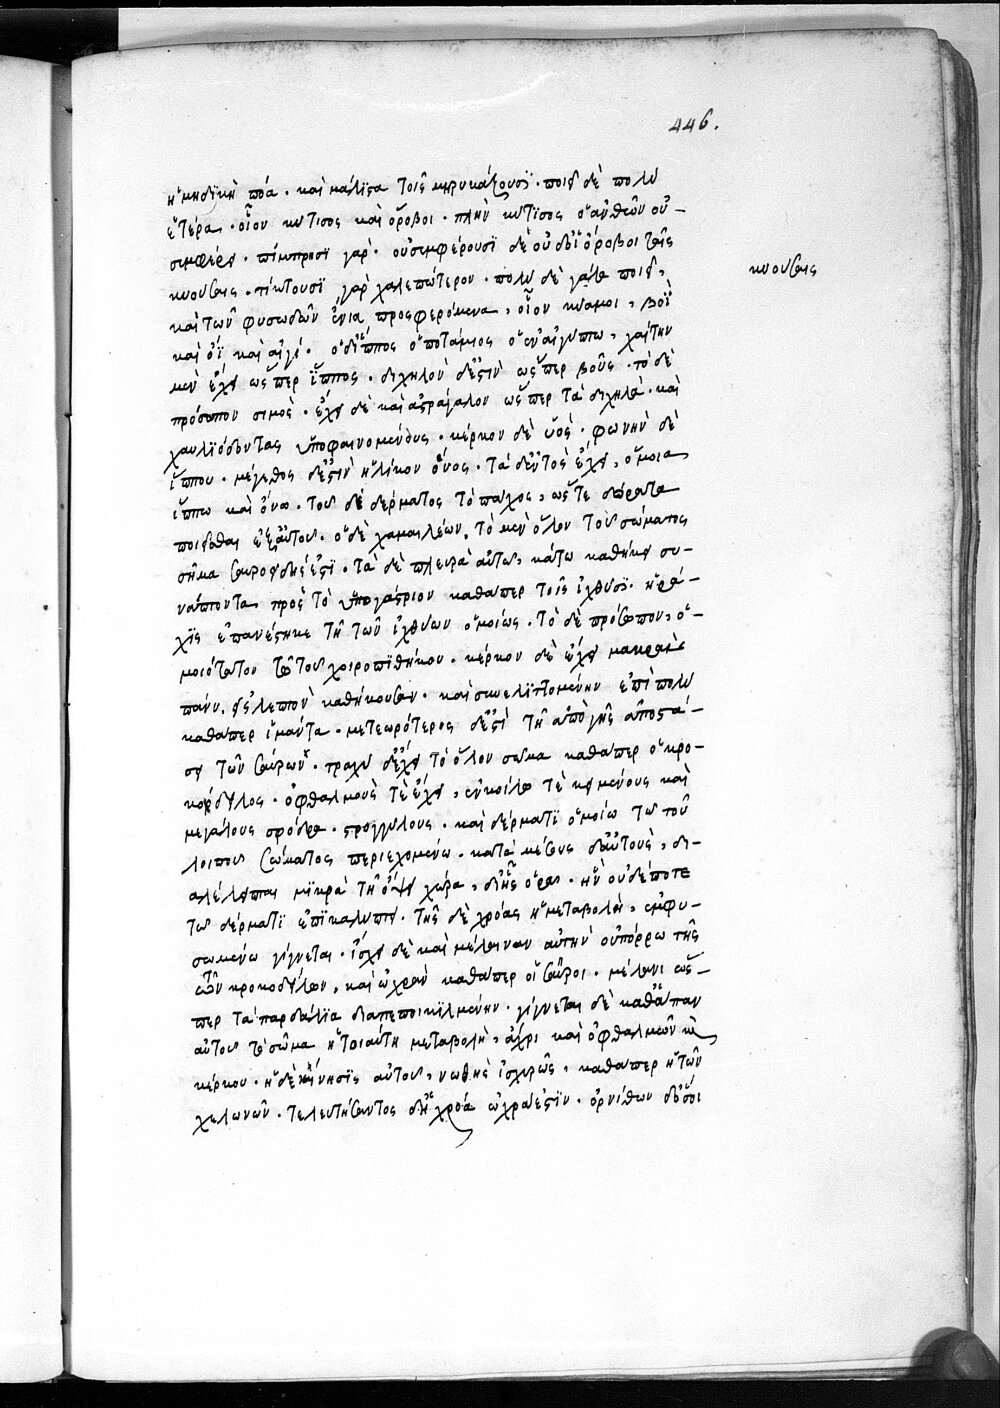 446.
ἡ μηδϊκὴ πόα · καὶ μάλϊστα τοῖς μηρυκάζουσϊ · ποιεῖ δὲ πολὺ
ἕτερα · οἷον κύτισος καὶ ὄροβοι · πλὴν κύτϊσος ὁ ἀνθῶν οὐ –
συμφέρει · πίμπρησϊ γάρ · οὐ συμφέρουσϊ δὲ οὐδὲ οἱ ὄροβοι ταῖς
κυούσαις · τίκτουσϊ γὰρ χαλεπώτερον · πολὺ δὲ γάλα ποιεῖ,
κυούσαις
καὶ τῶν φυσωδῶν ἔνια προσφερόμενα, οἷον κύαμοι, βοῒ
καὶ οἴϊ καὶ αἰγί · ὁ δ' ἵππος ὁ ποτάμιος ὁ ἐν αἰγύπτω, χαίτην
μὲν ἔχει ὥσπερ ἵππος · διχηλὸν δ' ἐστὶν ὥσπερ βοῦς · τὸ δὲ
πρόσωπον σιμός · ἔχει δὲ καὶ ἀστράγαλον ὥσπερ τὰ διχηλὰ · καὶ
χαυλιόδοντας ὑποφαινομένους · κέρκον δὲ ὑὸς · φωνὴν δὲ
ἵππου · μέγεθος δ' ἐστὶν ἡλίκον ὄνος · τὰ δ' ἐντὸς ἔχει, ὅμοια
ἵππω καὶ ὄνω · τοῦ δὲ δέρματος τὸ πάχος, ὥστε δόρατα
ποιεῖσθαι ἐξ αὐτοῦ · ὁ δὲ χαμαιλέων, τὸ μὲν ὅλον τοῦ σώματος
σχῆμα σαυροειδὲς ἔχει · τὰ δὲ πλευρὰ αὐτῶ, κάτω καθήκει συ –
νάπτοντα πρὸς τὸ ὑπογάστριον καθάπερ τοῖς ἰχθύσϊ · ἡ ῥά –
χϊς ἐπανέστηκε τῇ τῶν ἰχθύων ὁμοίως · τὸ δὲ πρόσωπον, ὁ –
μοιότατον τῶ τοῦ χοιροπϊθήκου · κέρκον δὲ ἔχει μακρὰν
πάνυ, εἰς λεπτὸν καθήκουσαν · καὶ συνελϊττομένην ἐπὶ πολὺ
καθάπερ ἱμάντα · μετεωρότερος δ' ἐστὶ τῇ ἀπὸ γῆς ἀποστά –
σει τῶν σαύρων · τραχὺ δ' ἔχει τὸ ὅλον σῶμα καθάπερ ὁ κρο –
κόδειλος · ὀφθαλμοὺς τὲ ἔχει, ἐν κοίλω τὲ κειμένους καὶ
μεγάλους σφόδρα · στρογγύλους · καὶ δέρματϊ ὁμοίω τῶ τοῦ
λοιποῦ σώματος περιεχομένω · κατὰ μέσους δ' αὐτοὺς, δι –
αλέλειπται μϊκρὰ τῇ ὄψει χώρα, δι' ἧς ὁρᾶ · ἣν οὐδέποτε
τῶ δέρματϊ ἐπϊκαλύπτει · τῆς δὲ χρόας ἡ μεταβολὴ, ἐμφυ –
σωμένω γίγνεται · ἴσχει δὲ καὶ μέλαιναν αὐτὴν οὐ πόρρω τῆς
τῶν κροκοδείλων, καὶ ὠχρὰν καθάπερ οἱ σαῦροι · μέλανι ὥσ –
περ τὰ παρδάλϊα διαπεποικϊλμένην · γίγνεται δὲ καθάπαν
αὐτοῦ τὸ σῶμα ἡ τοιαύτη μεταβολὴ, ἄχρι καὶ ὀφθαλμῶν καὶ
κέρκου · ἡ δὲ κίνησϊς αὐτοῦ, νωθὴς ἰσχυρῶς, καθάπερ ἡ τῶν
χελωνῶν · τελευτήσαντος δὲ ἡ χροὰ ὠχρά ἐστϊν · ὀρνίθων δ' ὅσοι